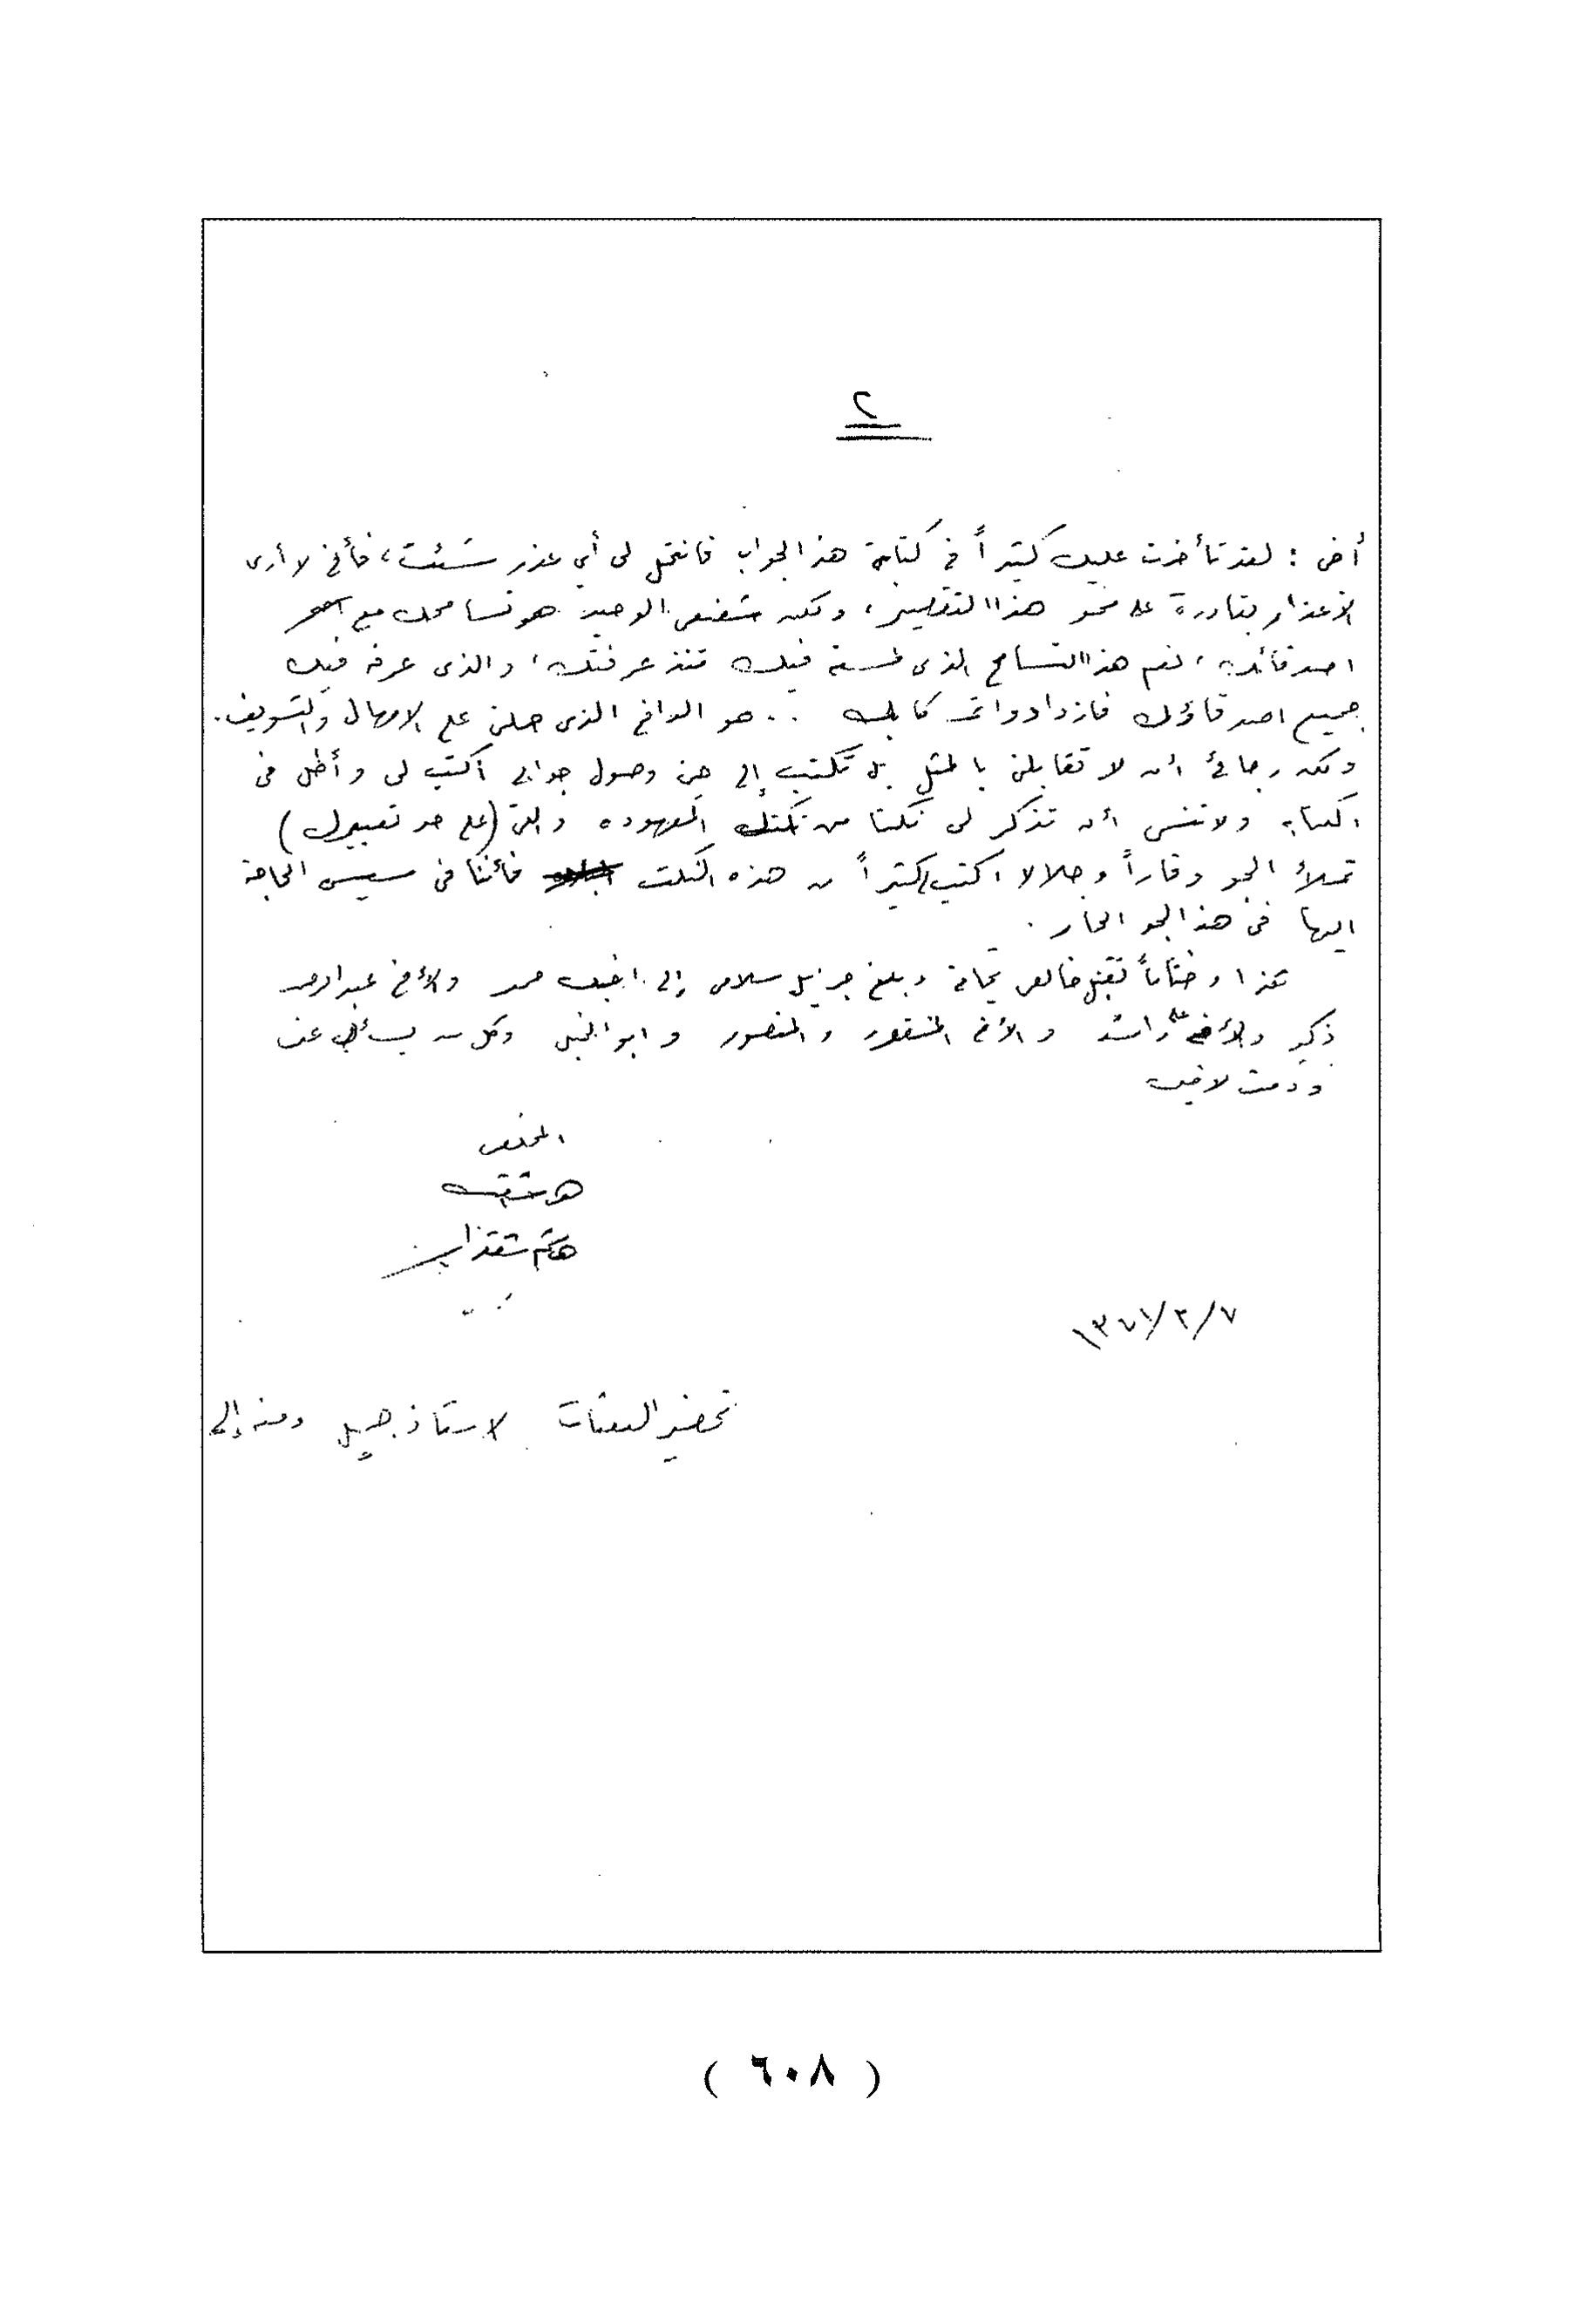 ٢
أخى : لقد تأخرت عليك كثيراً في كتابة هذا الجواب فانتحل لى أي عذر شئت ، فأني لا أرى
الأعذار بقادرة على محو هذا التقصير ، ولكن شفيعى الوحيد هو تسامحك مع
اصدقائك ، نعم هذا التسامح الذى لمسته فيك منذ عرفتك ، والذى عرفه فيك
جميع اصدقاؤك فازدادوا .. هو الدافع الذى حملنى على الامهال والتسويف .
ولكن رجائي أن لا تقابلنى بالمثل بل تكتب إلى حين وصول جوابى اكتب لى وأطل فى
الكتابه ولا تنسى أن تذكر لى نكتا من نكتك المعهوده والتى (على حد تعبيرك)
تملأ الجو وقاراً وجلالا اكتب كثيراً من هذه النكت فأننا فى مسيس الحاجة
اليها فى هذا الجو الحار .
هذا وختاماً تقبل خالص تحياتى وبلغ جزيل سلامى إلى اخيك محمد والأخ عبدالرحمن
ذكير والأخ على راشد والأخ المنقور والمنصور وابوالخيل وكل من يسأل عنى
ودمت لاخيك
المخلص
هاشم شقدار
١٣٧١/٣/٧
تحضير البعثات لاستاذ جميل ومنه إلى
( ٦٠٨ )